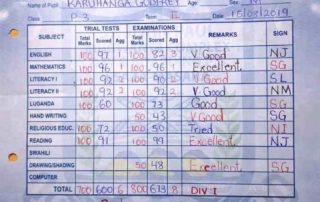 Name of Pupil KARUHANGA GODFREY Age Sex M
Class P.3 Term II 15/08/2019
SUBJECT TRIAL TESTS EXAMINATIONS REMARKS SIGN
Total Marks Scored Agg Total Marks Scored Agg
ENGLISH 100 97 1 100 82 3 V. Good NJ
MATHEMATICS 100 96 1 100 91 1 Excellent SG
LITERACY I 100 92 2 100 90 2 V. Good SL
LITERACY II 100 92 2 100 92 2 V. Good NM
LUGANDA 100 60 100 73 Good SG
HAND WRITING 50 43 V. Good SG
RELIGIOUS EDUC. 100 72 100 50 Tried NI
READING 100 91 100 99 Excellent NJ
SWAHILI
DRAWING/SHADING 50 48 Excellent SG
COMPUTER
TOTAL 700 600 6 800 613 8 DIV: I